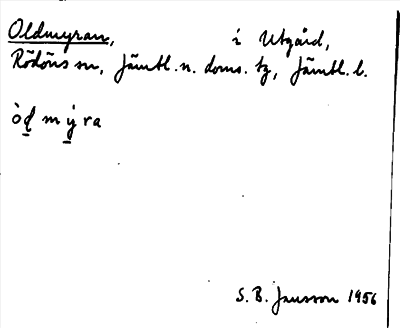 Oldmyran, i Utgård,
Rödöns sn, Jämtl. n. doms. tg, Jämtl. l.
òḏ m ý̱ ra
S. B. Jansson 1956